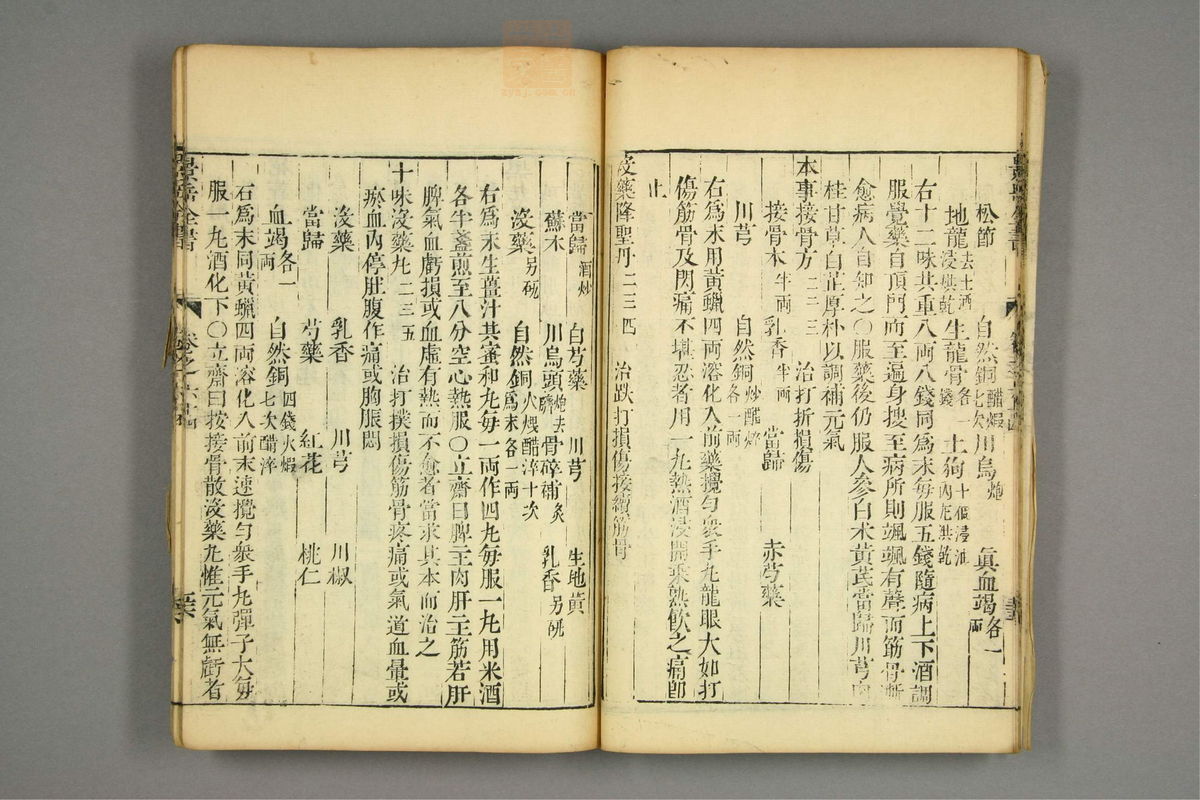 松節 自然銅醋煆七次川烏炮 眞血竭各一兩
地龍去土酒浸烘乾生龍骨各一錢 土狗十個浸油內死烘乾
右十二味共重八兩八錢同爲末每服五錢隨病上下酒調
服覺藥自頂門而至遍身搜至病所則颯颯有聲而筋骨漸
愈病人自知之○服藥後仍服人參白术黃芪當歸川芎肉
桂甘草白芷厚朴以調補元氣
本事接骨方二二三 治打折損傷
接骨木半兩 乳香半兩 當歸 赤芍藥
川芎 自然銅炒醋淬各一兩
右爲末用黃蠟四兩溶化入前藥攪勻衆手丸龍眼大如打
傷筋骨及閃痛不堪忍者用一丸熱酒浸開乘熱飲之痛卽
止
沒藥降聖丹二三四 治跌打損傷接續筋骨
當歸酒炒 白芍藥 川芎 生地黃
蘇木 川烏頭炮去臍 骨碎補炙 乳香另硏
沒藥另硏 自然銅火煆醋淬十次爲末各一兩
右爲末生薑汁共蜜和丸每一兩作四丸每服一丸用米酒
各半盞煎至八分空心熱服○立齋曰脾主肉肝主筋若肝
脾氣血虧損或血虛有熱而不愈者當求其本而治之
十味沒藥丸二三五 治打撲損傷筋骨疼痛或氣道血暈或
瘀血內停肚腹作痛或胸脹悶
沒藥 乳香 川芎 川椒
當歸 芍藥 紅花 桃仁
血竭各一兩 自然銅四錢火煆七次醋淬
右爲末同黃蠟四兩溶化入前末速攪勻衆手丸彈子大每
服一丸酒化下○立齋曰按接骨散沒藥丸惟元氣無虧者
景岳全書